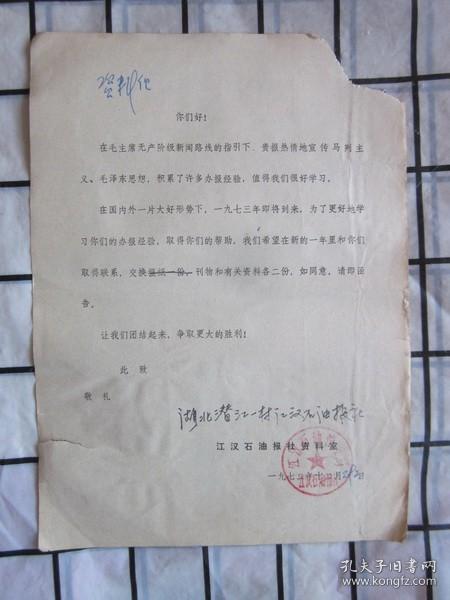 资料化
你们好!
在毛主席无产阶级新闻路线的指引下,贵报热情地宣传马列主
义、毛泽东思想,积累了许多办报经验,值得我们很好学习。
在国内外一片大好形势下,一九七三年即将到来,为了更好地学
习你们的办报经验,取得你们的帮助,我们希望在新的一年里和你们
取得联系,交换报纸一份、刊物和有关资料各二份,如同意,请即函
告。
让我们团结起来,争取更大的胜利!
此致
敬礼
湖北潜江一村江汉石油报社
江汉石油报社资料室
一九七二年十二月 日
孔夫子旧书网
www.kongfz.com